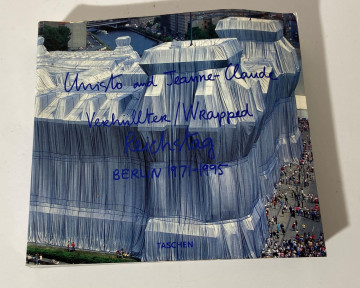 Christo and Jeanne-Claude
Verhüllter/Wrapped
Reichstag
BERLIN 1971-1995
TASCHEN